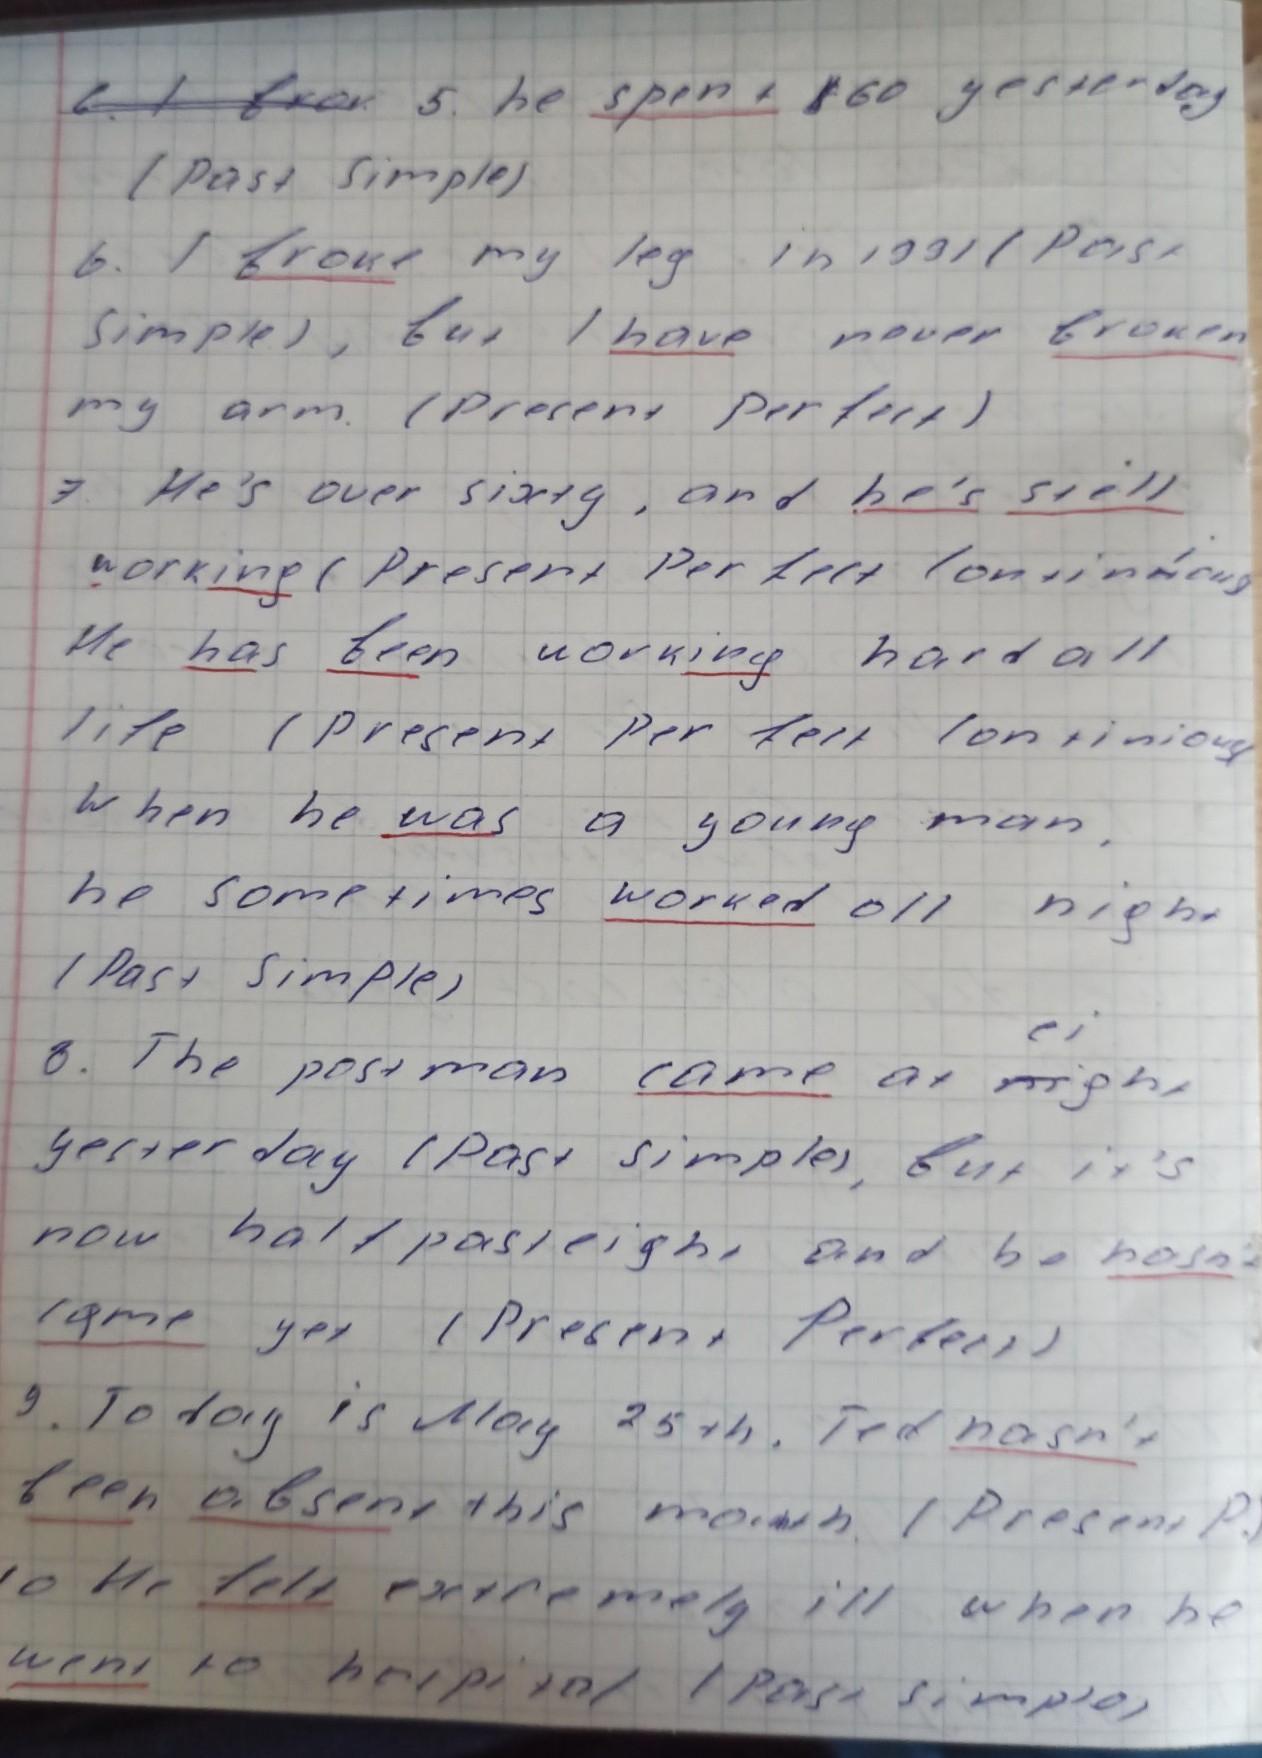 5. he spent $60 yesterday
(Past Simple)
6. I broke my leg in 1991 (Past
Simple), but I have never broken
my arm. (Present Perfect)
7. He's over sixty, and he's still
working (Present Perfect Continious
He has been working hard all
life (Present Perfect Continious
When he was a young man,
he sometimes worked all night
(Past Simple)
ei
8. The postman came at night
yesterday (Past Simple), but it's
now half past eight and he hasn't
came yet (Present Perfect)
9. Today is May 25th. Ted hasn't
been absent this month. (Present P.)
10 He felt extremely ill when he
went to hospital (Past Simple)